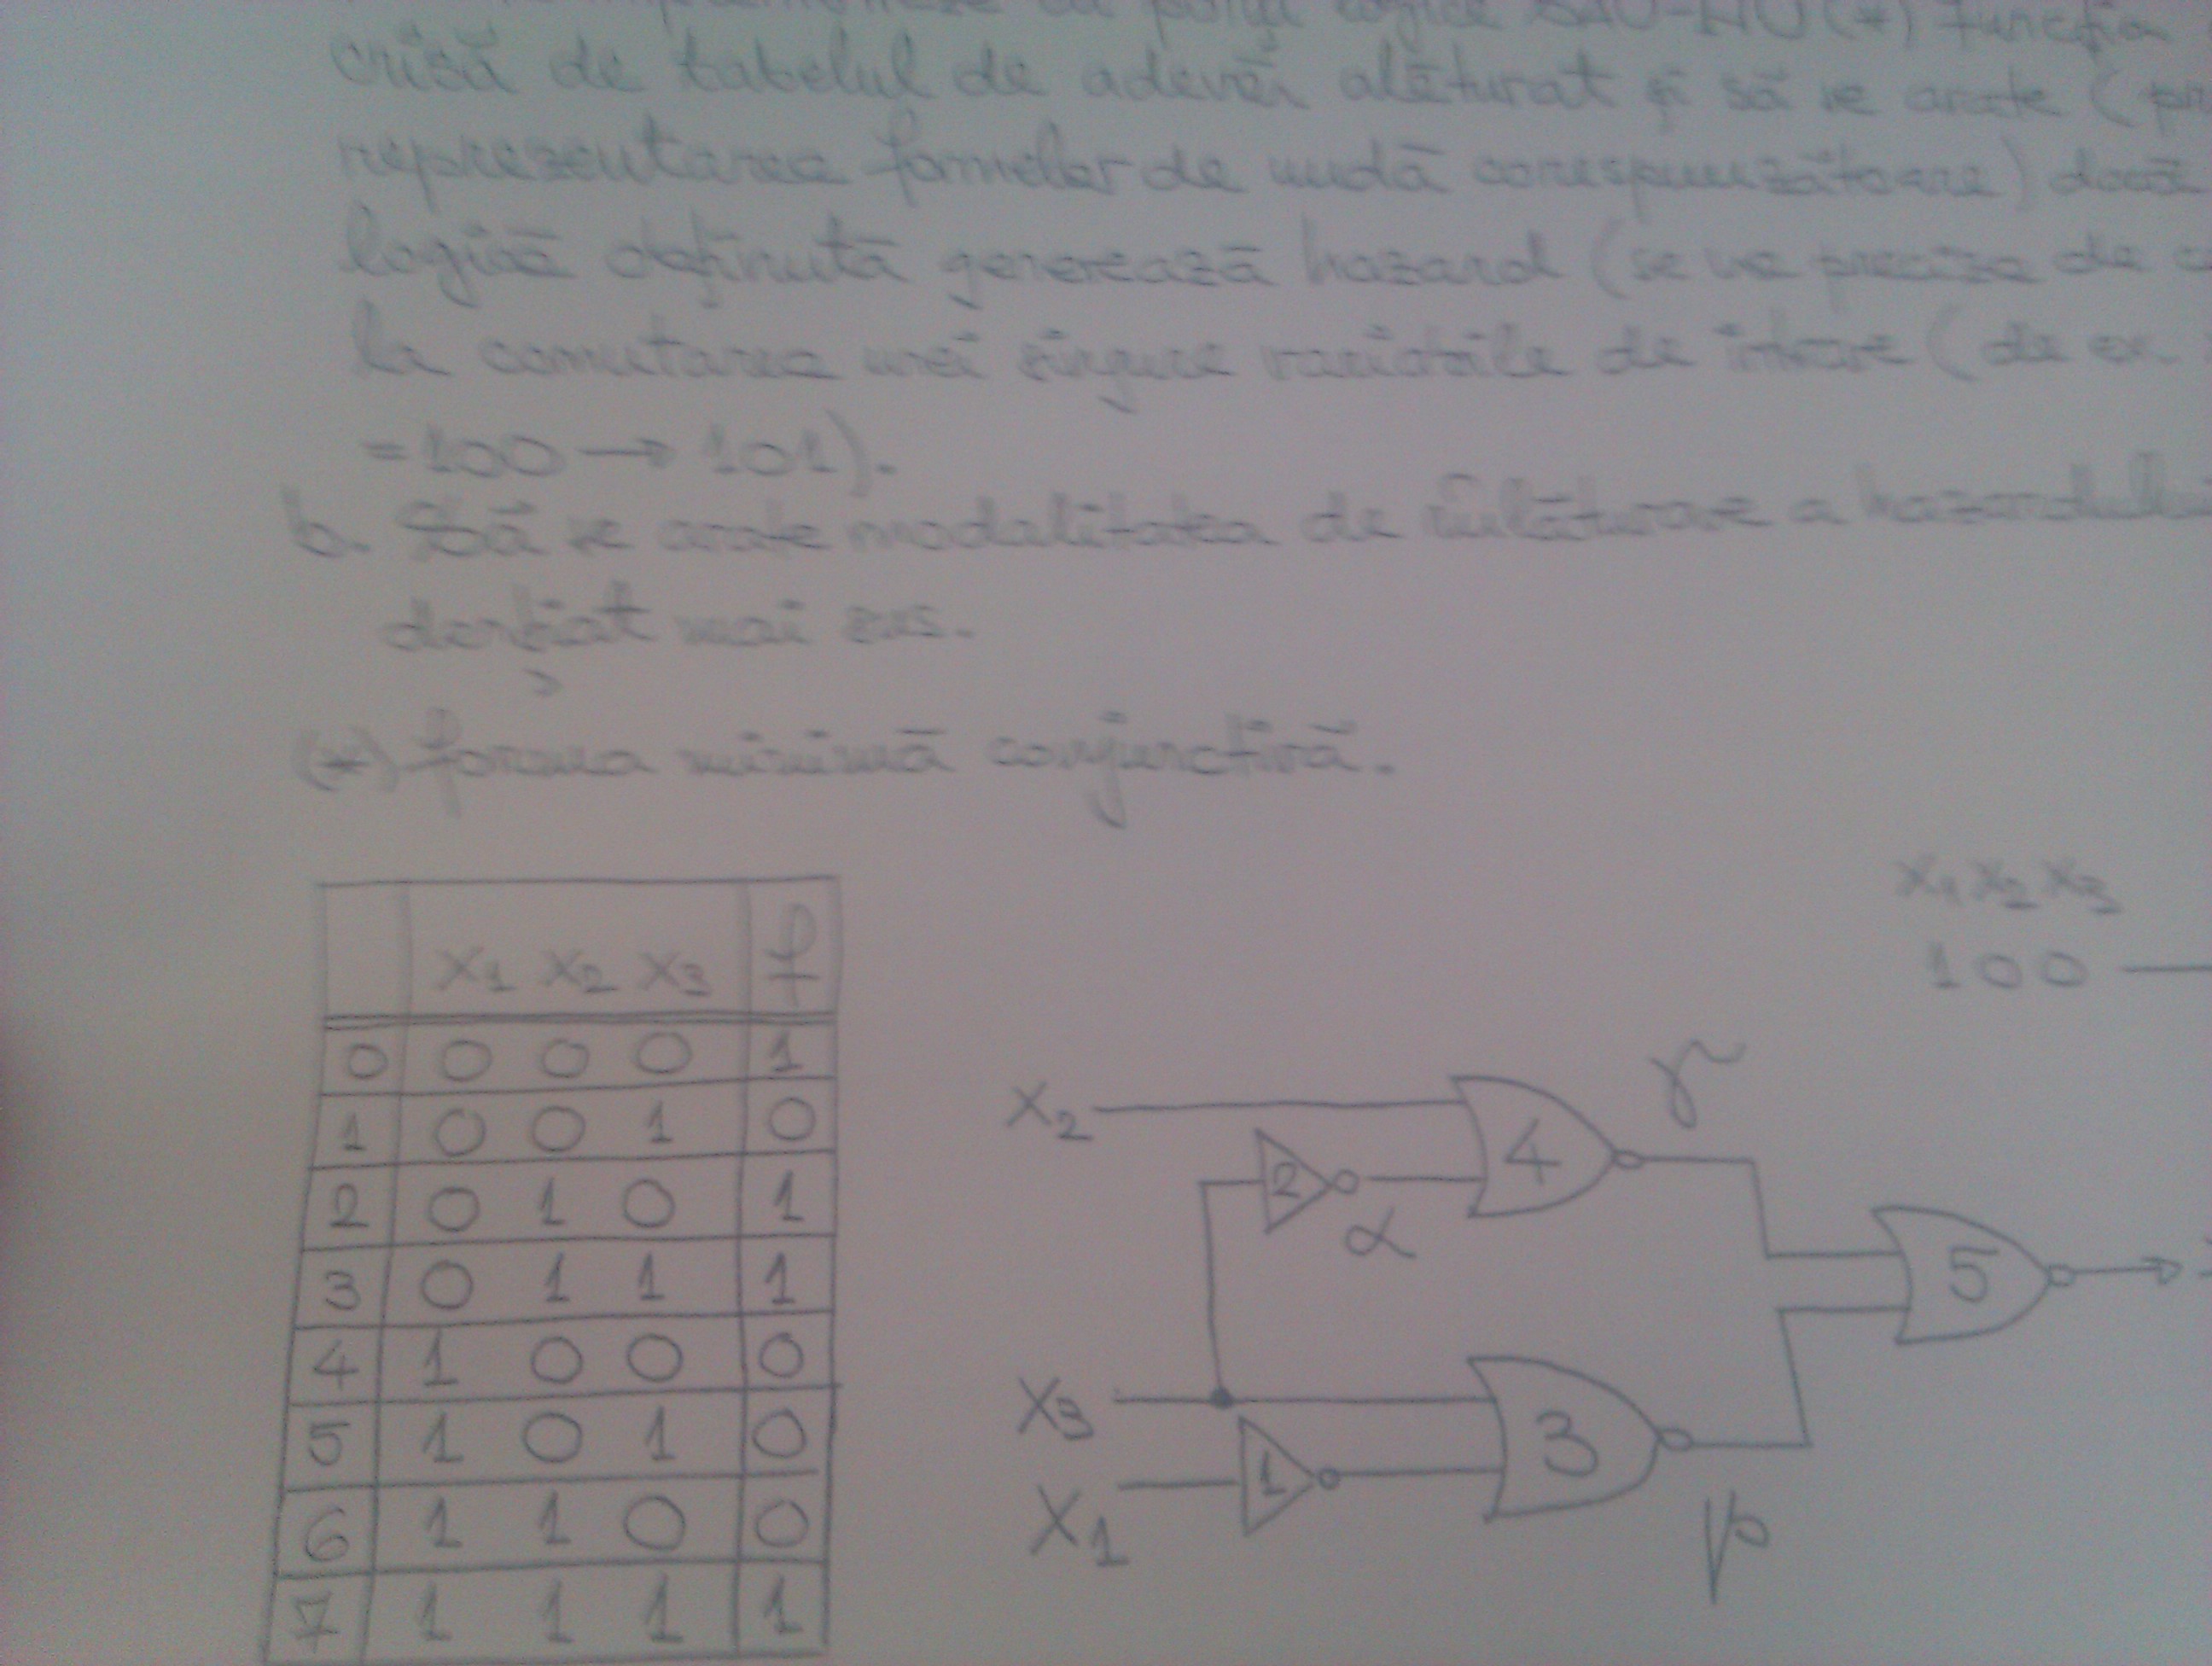 porți logice SAU-NU (*) funcția
crisă de tabelul de adevăr alăturat și să se arate (pr
reprezentarea formelor de undă corespunzătoare) dacă
logică obținută generează hazard (se va preciza de c
la comutarea unei singure variabile de intrare (de ex.
=100 → 101).
b. Să se arate modalitatea de înlăturare a hazardului
dențiat mai sus.
(*) forma minimă conjunctivă.
x1 x2 x3
100
x1 x2 x3 f
0 0 0 0 1
1 0 0 1 0
2 0 1 0 1
3 0 1 1 1
4 1 0 0 0
5 1 0 1 0
6 1 1 0 0
7 1 1 1 1
γ
x2 4
2
α
5
x3
3
1
x1
β